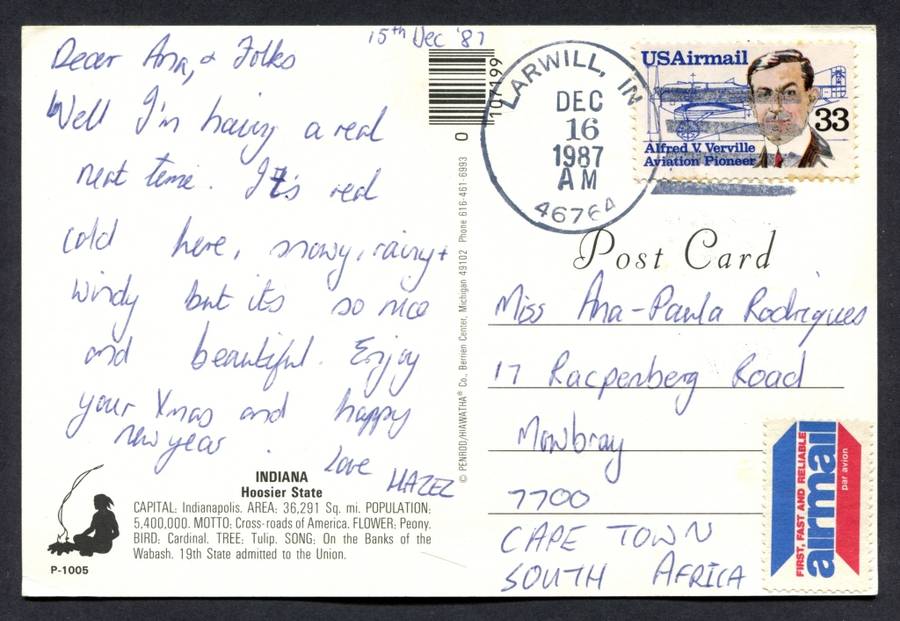 15th Dec '87
Dear Ana, & Folks
Well I'm having a real
neat time. It's real
cold here, snowy, rainy +
windy but it's so nice
and beautiful. Enjoy
your Xmas and happy
new year.
Love
HAZEL
INDIANA
Hoosier State
CAPITAL: Indianapolis. AREA: 36,291 Sq. mi. POPULATION:
5,400,000. MOTTO: Cross-roads of America. FLOWER: Peony.
BIRD: Cardinal. TREE: Tulip. SONG: On the Banks of the
Wabash. 19th State admitted to the Union.
P-1005
0 107199
© PENROD/HIAWATHA® Co., Berrien Center, Michigan 49102 Phone 616-461-6993
LARWILL, IN
DEC
16
1987
AM
46764
USAirmail
33
Alfred V. Verville
Aviation Pioneer
Post Card
Miss Ana-Paula Rodrigues
17 Racpenberg Road
Mowbray
7700
CAPE TOWN
SOUTH AFRICA
FIRST, FAST AND RELIABLE
airmail
par avion